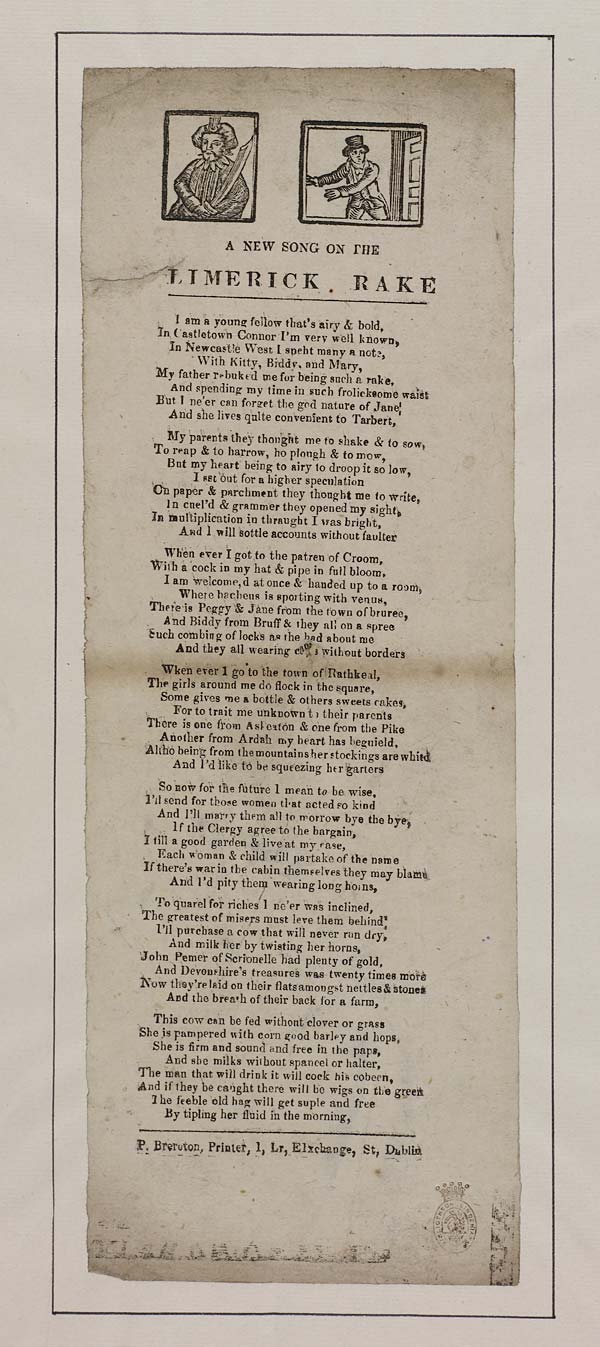 A NEW SONG ON THE
LIMERICK. RAKE
I am a young fellow that's airy & bold,
In Castletown Connor I'm very well known,
In Newcastle West I speht many a note,
With Kitty, Biddy, and Mary,
My father rebuked me for being such a rake,
And spending my time in such frolicksome waist
But I ne'er can forget the god nature of Jane,
And she lives quite convenient to Tarbert,
My parents they thought me to shake & to sow,
To reap & to harrow, ho plough & to mow,
But my heart being to airy to droop it so low,
I set out for a higher speculation
On paper & parchment they thought me to write,
In cuel'd & grammer they opened my sight,
In multiplication in thraught I was bright,
And I will sottle accounts without faulter
When ever I got to the patren of Croom,
With a cock in my hat & pipe in full bloom,
I am welcome,d at once & handed up to a room,
Where bacheus is sporting with venus,
There is Peggy & Jane from the town of bruree,
And Biddy from Bruff & they all on a spree
Such combing of locks as the had about me
And they all wearing without borders
Wken ever I go to the town of Rathkeal,
The girls around me do flock in the square,
Some gives me a bottle & others sweets cakes,
For to trait me unknown to their parents
There is one from Askeaton & one from the Pike
Another from Ardah my heart has beguield,
Altho being from the mountains her stockings are whited
And I'd like to be squeezing her garters
So now for the future I mean to be wise,
I'll send for those women that acted so kind
And I'll marry them all to morrow bye the bye,
If the Clergy agree to the bargain,
I till a good garden & live at my ease,
Each woman & child will partake of the name
If there's war in the cabin themselves they may blame
And I'd pity them wearing long hoins,
To quarel for riches I ne'er was inclined,
The greatest of misers must leve them behind,
I'll purchase a cow that will never run dry,
And milk her by twisting her horns,
John Pemer of Scrionelle had plenty of gold,
And Devonshire's treasures was twenty times more
Now they're laid on their flats amongst nettles & stones
And the breath of their back for a farm,
This cow can be fed without clover or grass
She is pampered with corn good barley and hops,
She is firm and sound and free in the paps,
And she milks without spancel or halter,
The man that will drink it will cock his cobeen,
And if they be caught there will be wigs on the green
The feeble old hag will get suple and free
By tipling her fluid in the morning,
P. Brereton, Printer, 1, Lr, Elxchange, St, Dublin